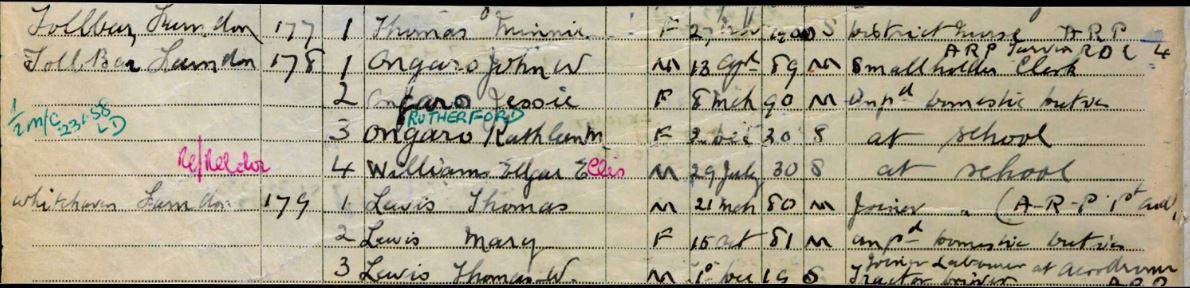 Tollbar, Farndon 177 1 Thomas Minnie F 27 S District Nurse A R P
Toll Bar Farndon 178 1 Ongaro John W M 13 Apl 89 M Smallholder Clerk A R P RDC 4
2 Ongaro Jessie F 8 Mch 90 M Unpd domestic duties
1/2 M/C 23.1.58 LD
RUTHERFORD
3 Ongaro Kathleen M F 2 Dec 30 S at school
4 Williams Edgar Ellis M 29 July 30 S at school
179 1 Lewis Thomas M 21 Mch 80 M Joiner (A-R-P 1st aid)
2 Lewis Mary F 15 Oct 81 M unpd domestic duties
3 Lewis Thomas W. M 1st Dec 19 S Tractor Driver
Labourer at Aerodrome